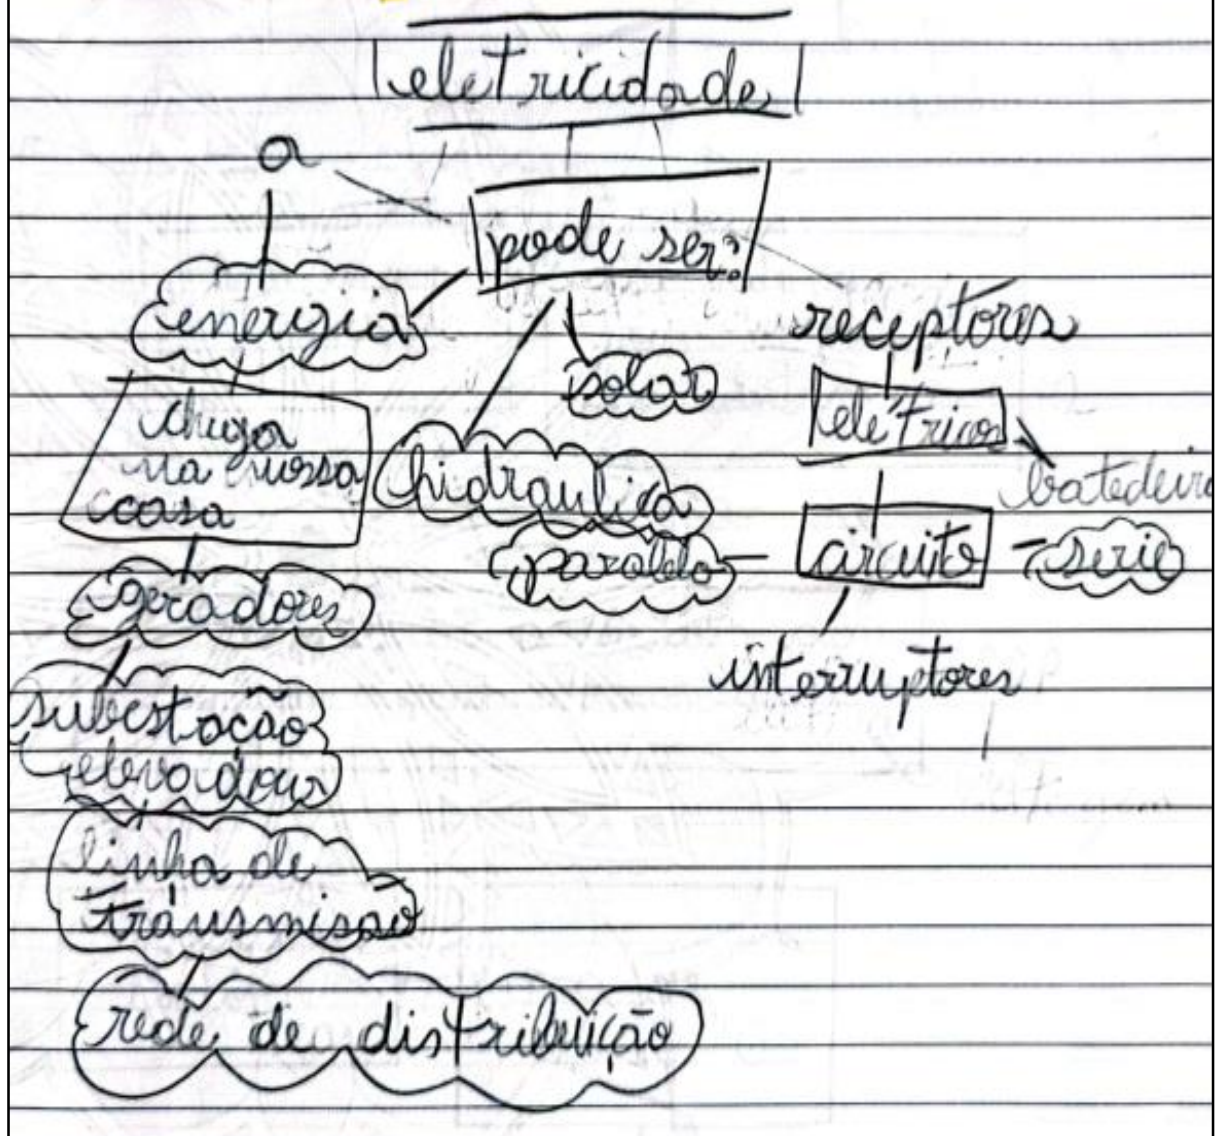 eletricidade
a
pode ser?
energia
receptores
solar
chega
na nossa
casa
elétricos
hidraulica
batedeira
paralelo
circuito
serie
geradores
interruptores
subestação
elevadora
linha de
transmisão
rede de distribuição